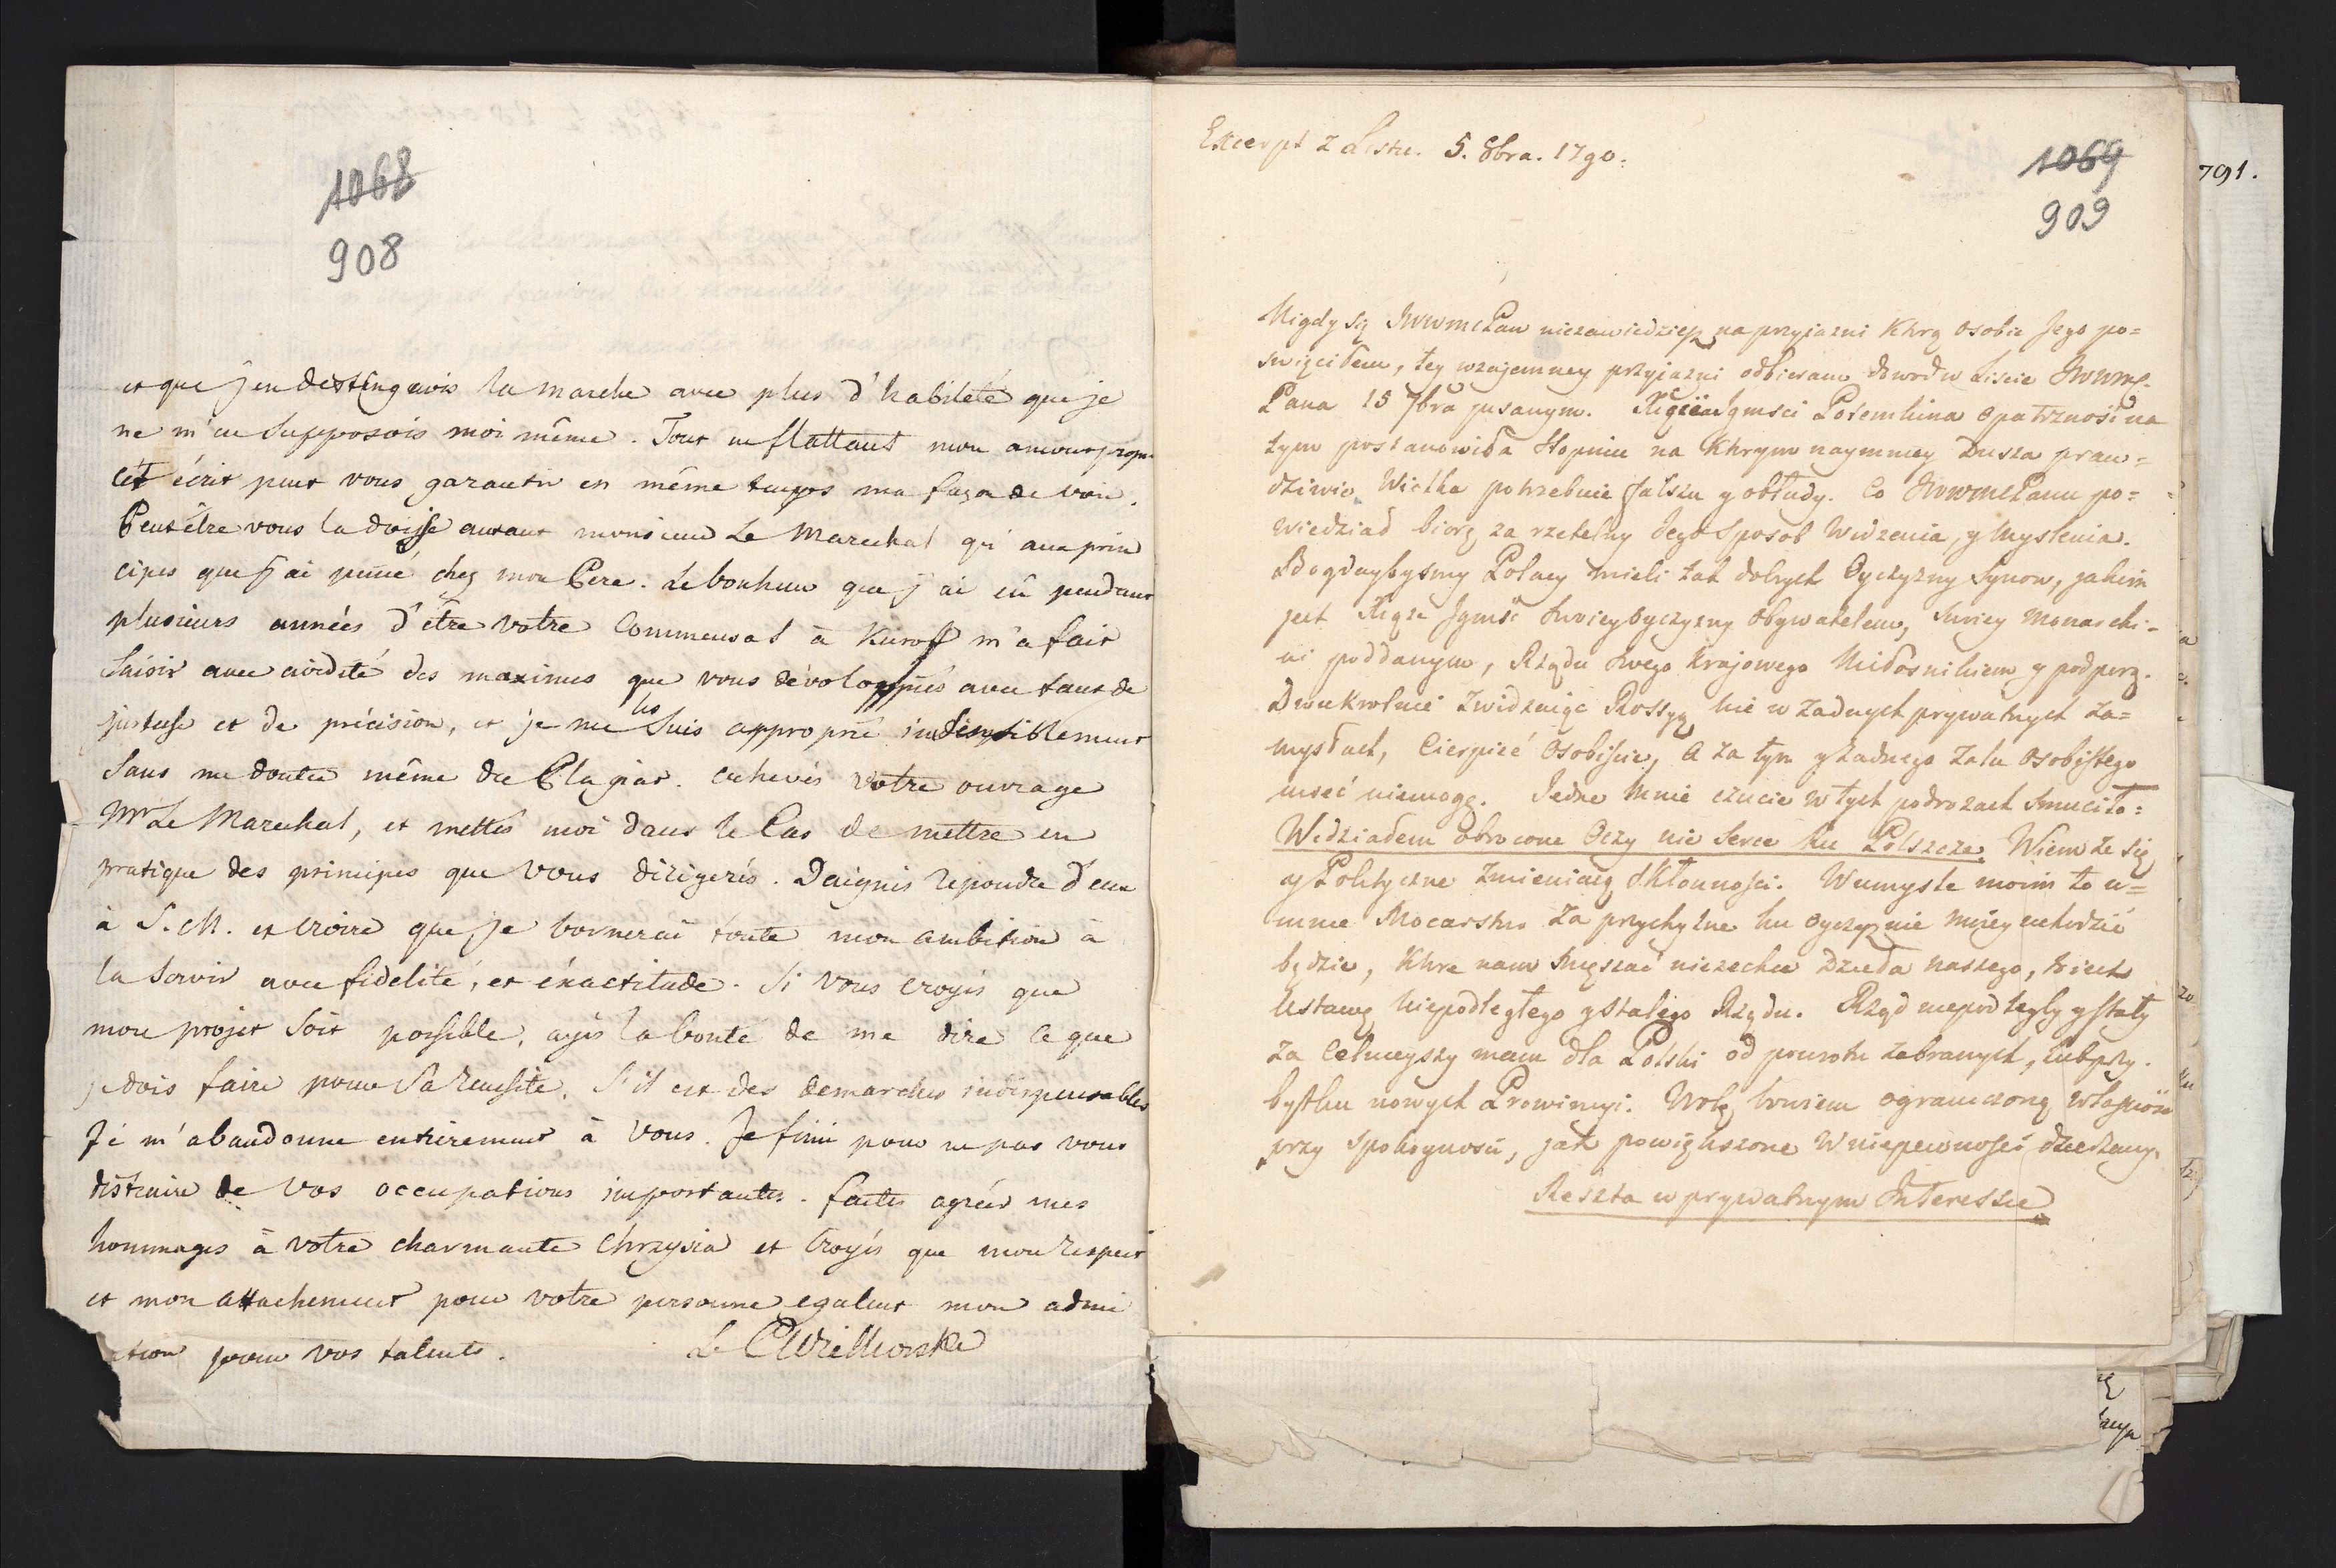 1068
908
et que j'en distinguois la marche avec plus d'habileté que je
ne m'en supposois moi même. Tout en flattant mon amour propre
cet écrit peut vous garantir en même temps ma façon de voir.
Peut être vous la doisje autant monsieur Le Marechal qu'aux prin
cipes que j'ai puisé chez mon Pere. Le bonheur que j'ai eû pendant
plusieurs années d'être votre Commensal à Kuroff m'a fait
saisir avec avidité des maximes que vous dévoloppiés avec tant de
justesse et de précision, et je me les suis approprié insensiblement
sans me douter même du Plagiat. achevés votre ouvrage
Mr Le Marechal, et mettés moi dans le Cas de mettre en
pratique des principes que vous dirigerés. Daignés repondre d'eux
à S. M. et croire que je bornerai toute mon ambition à
la servir avec fidelité, et éxactitude. Si vous croyés que
mon projet soit possible, ayés la bonté de me dire ce que
je dois faire pour sa reussite. S'il est des demarches indispensables
Je m'abandonne entierement à vous. Je finis pour ne pas vous
distraire de vos occupations importantes. faites agréer mes
hommages à votre charmante Chrzysia et Croyés que mon respect
et mon attachement pour votre personne egalent mon admi
ation pour vos talents. Le C Wielhorski
Excerpt z Listu. 5. 8bra. 1790.
1069
909
791.
Nigdy się JWWmcPan niezawiedziesz na przyjazni Khrą osobie Jego po=
swięciłem, tey wzajemney przyjazni odbieram dowod w Liscie JWWmć
Pana 15 7bra pisanym. Xięcia Jgmsci Potemkina opatrznosć na
tym postanowiła stopniu na Khrym naymniey Dusza praw=
dziwie Wielka potrzebuie fałszu y obłudy. Co JWWmcPanu po=
wiedział biorę za rzetelny Jego Sposob Widzenia, y Myslenia.
Bdogdaybysmy Polacy mieli tak dobrych Oyczyzny Synow, jakim
jest Xiąze Jgmść swoiey oyczyzny obywatelem, swoiey Monarchi-
ni poddanym, Rządu swego Krajowego Miłosnikiem y podporą.
Dwukrotnie zwidzaiąc Rossyą nie w żadnych prywatnych za=
mysłach, Cierpieć osobiscie, a za tym y żadnego żalu osobistego
mieć niemogę. Jedne mnie czucie w tych podrozach smuciło:
Widziałem obrocone Oczy nie Serce ku Polszcze. Wiem że się
y Polityczne zmieniaią skłonnosci. W umysle moim to u=
mnie Mocarstwo za przychylne ku oyczyznie moiey uchodzić
będzie, Khre nam mięszać niezechce Dzieła naszego, trzech
Ustawę Niepodległego y stałego Rządu. Rząd niepodległy y stały
za Celnieyszy mam dla Polski od powrotu zabranych, lub przy-
bytku nowych Prowincyi. Wolę bowiem ograniczoną własność
przy Spokoynosci, jak powiększone W niepewnosci dzierżawy.
Reszta w prywatnym Interessie